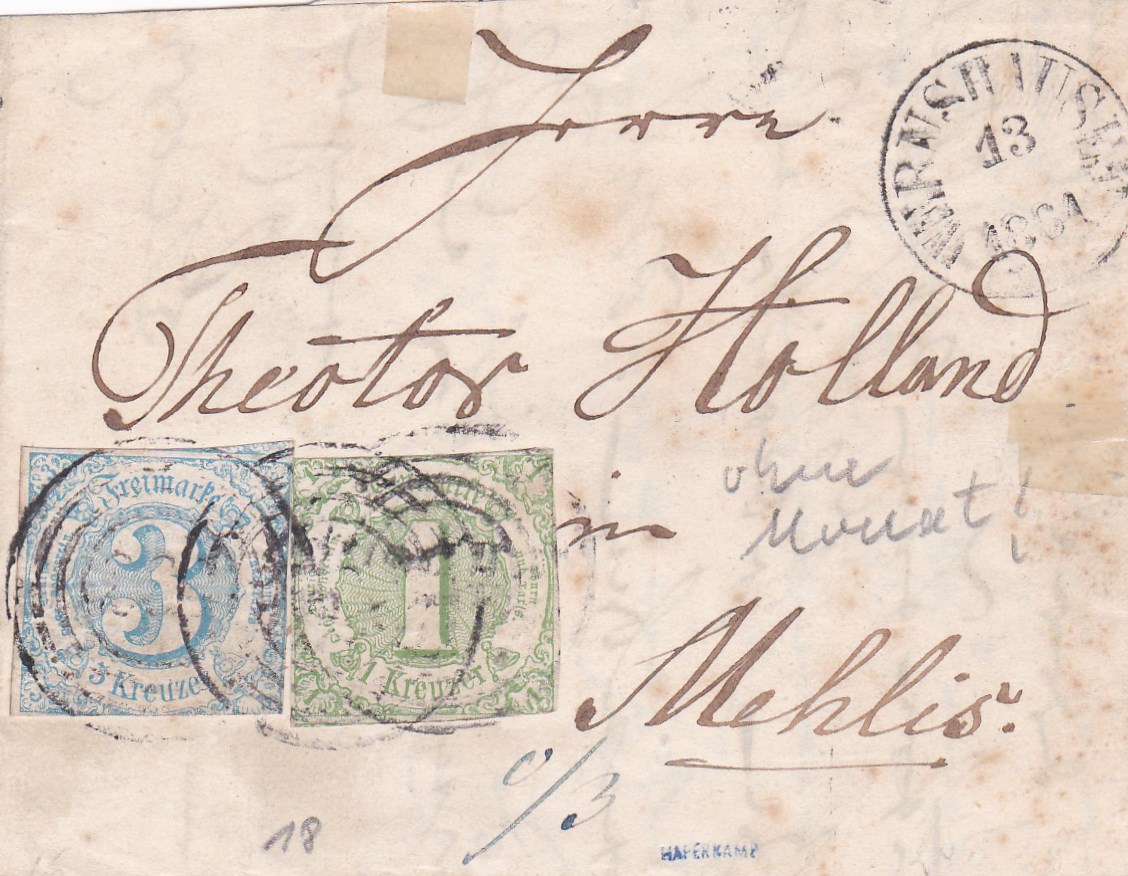 Herrn
WERNSHAUSEN
13
1864
Theotor Holland
in
Mehlis.
ohne
Monat!
Freimarke
3
3 Kreuzer
1
1 Kreuzer
0/3
18
HAPERKAMP